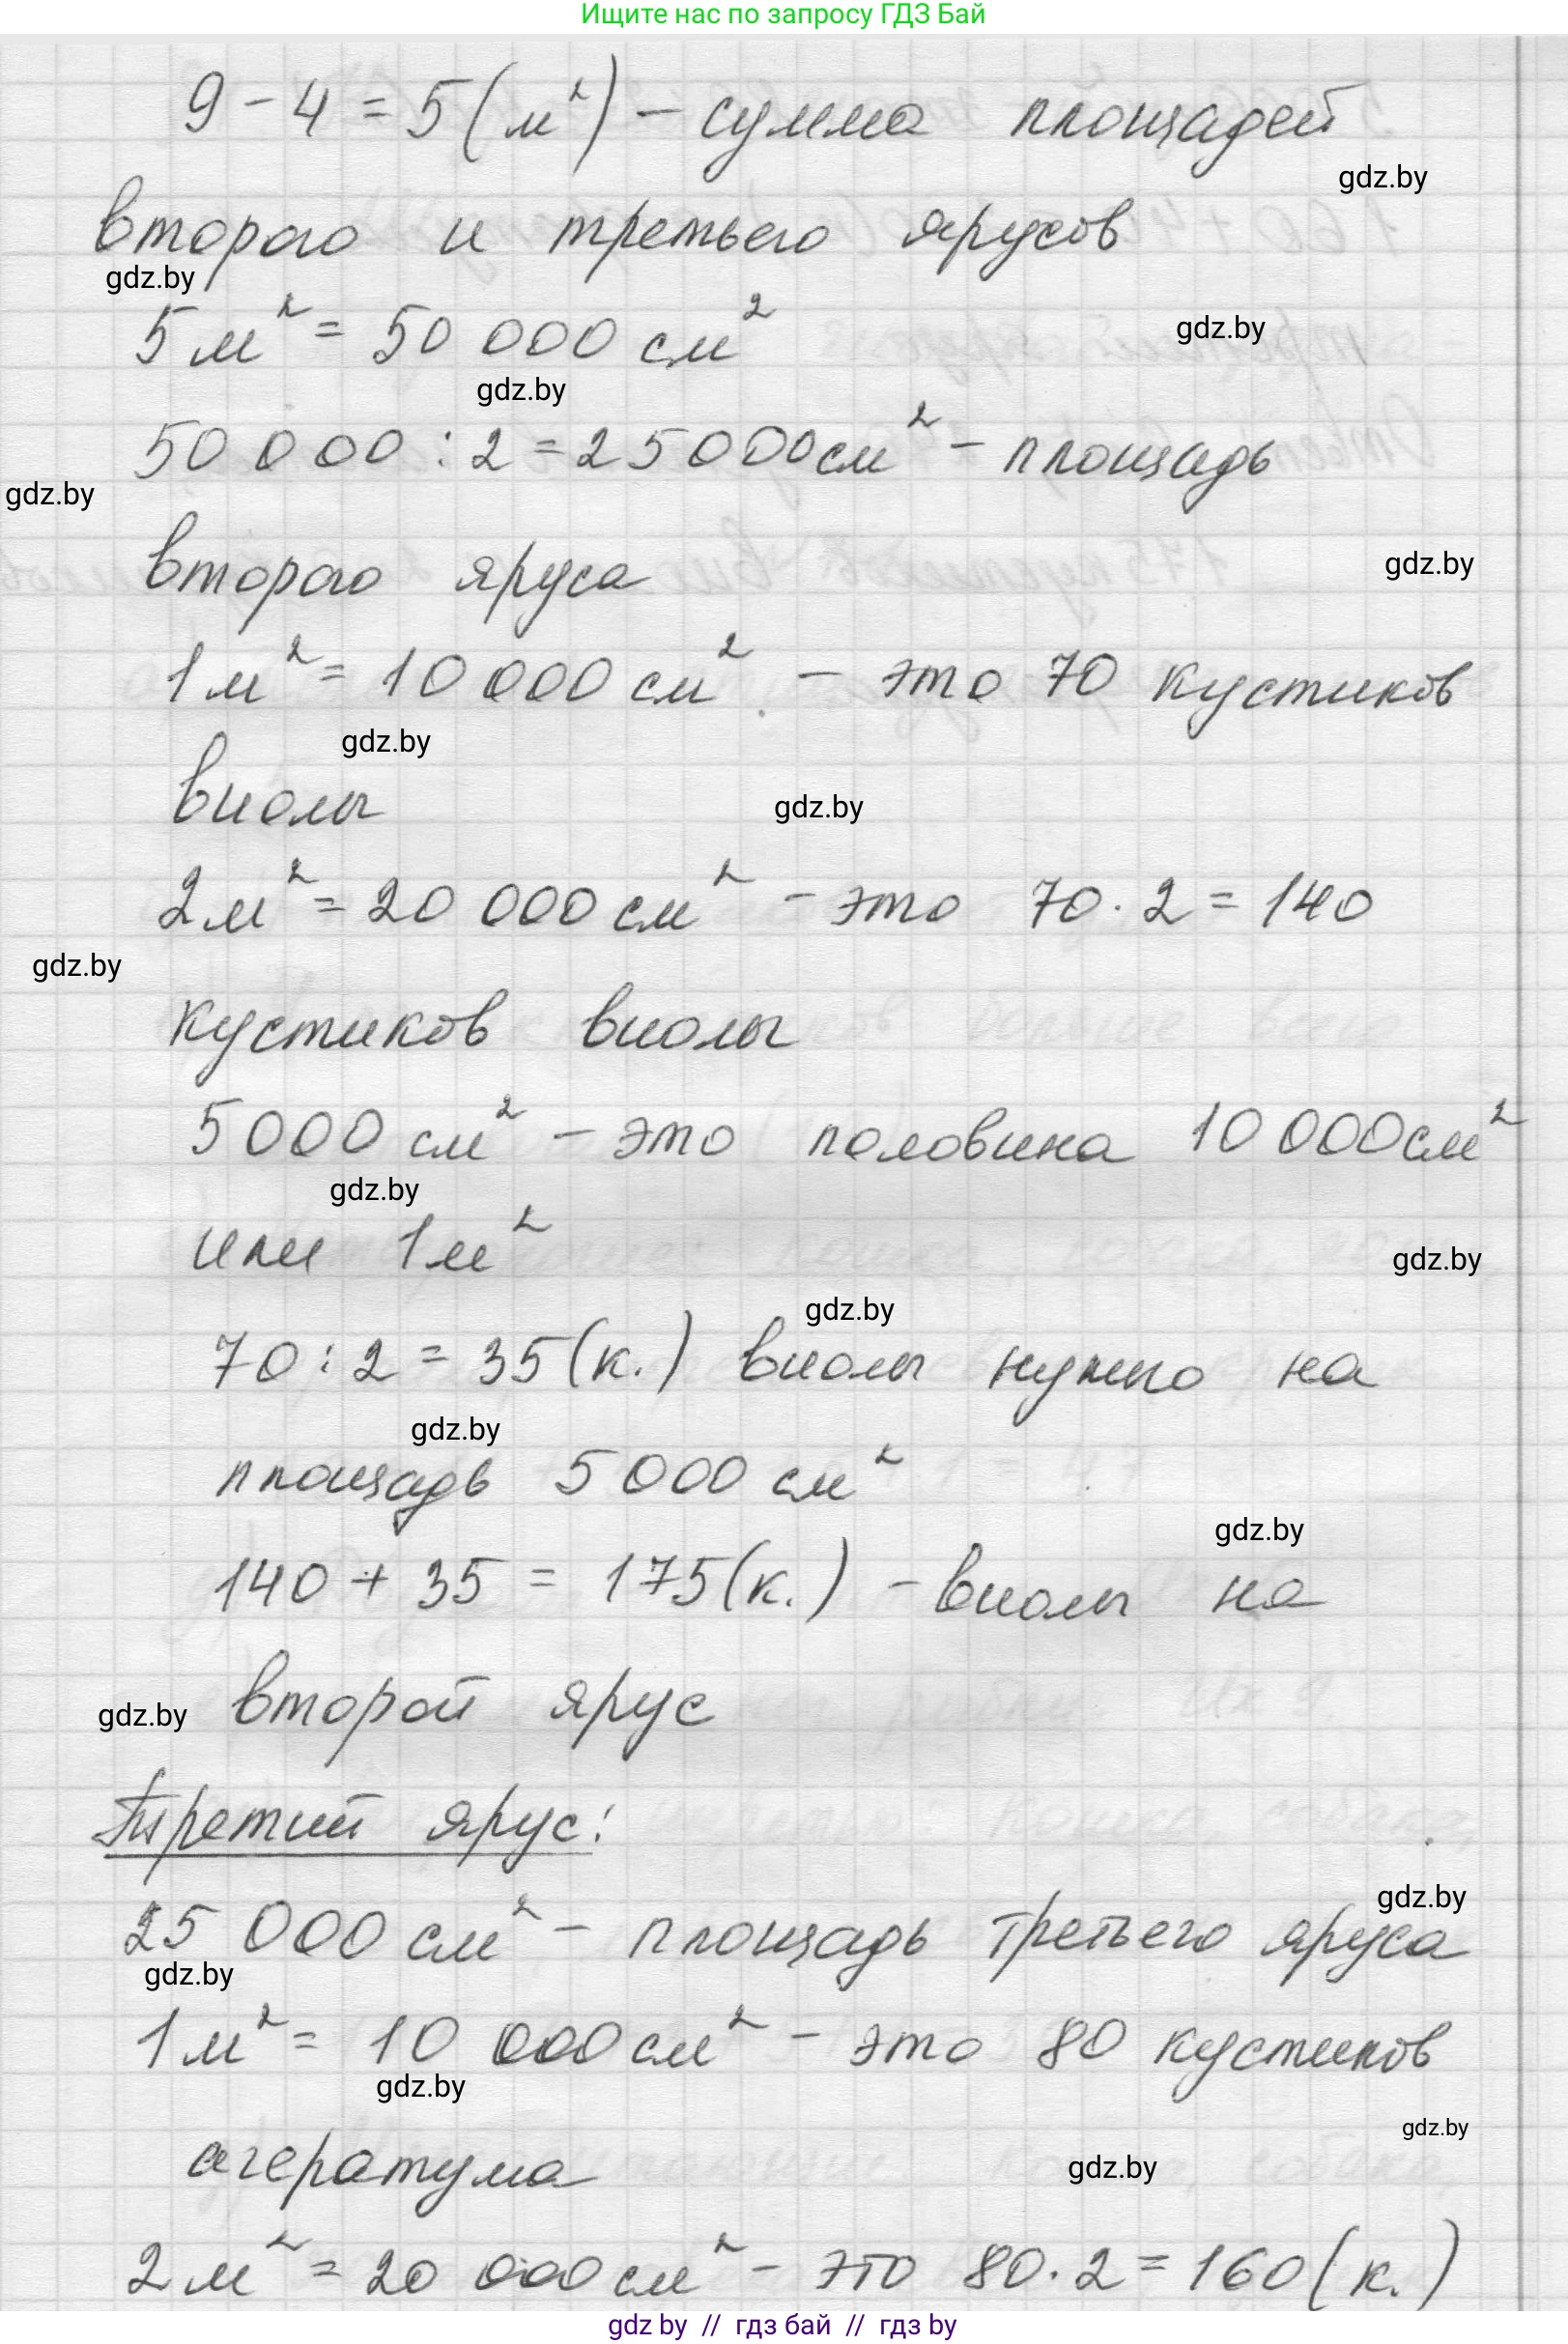 Ищите нас по запросу ГДЗ Бай
9 - 4 = 5 (м²) - сумма площадей
gdz.by
второго и третьего ярусов
gdz.by
5 м² = 50 000 см²
gdz.by
gdz.by
50 000 : 2 = 25 000 см² - площадь
gdz.by
второго яруса
gdz.by
1 м² = 10 000 см² - это 70 кустиков
gdz.by
виолы
gdz.by
2 м² = 20 000 см² - это 70 · 2 = 140
gdz.by
кустиков виолы
5000 см² - это половина 10 000 см²
gdz.by
или 1 м²
gdz.by
gdz.by
70 : 2 = 35 (к.) виолы нужно на
gdz.by
площадь 5 000 см²
gdz.by
140 + 35 = 175 (к.) - виолы на
gdz.by второй ярус
Третий ярус:
gdz.by
25 000 см² - площадь третьего яруса
gdz.by
1 м² = 10 000 см² - это 80 кустиков
gdz.by
gdz.by
агератума
gdz.by
2 м² = 20 000 см² - это 80 · 2 = 160 (к.)
gdz by // гдз бай // гдз by